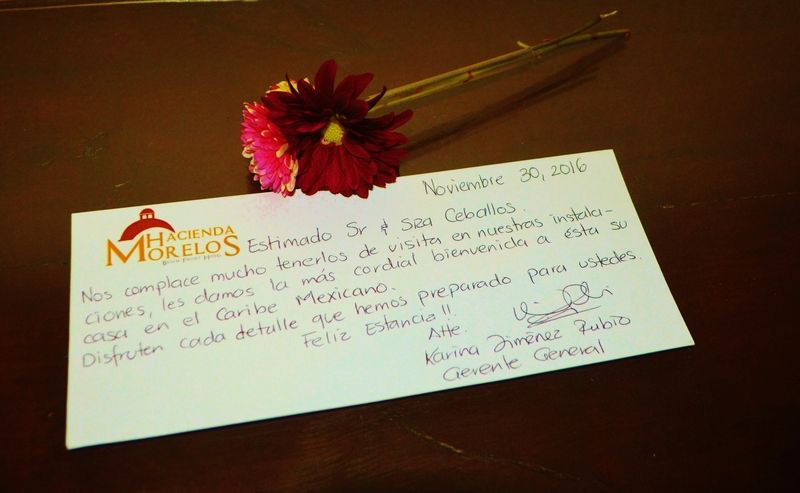 Noviembre 30, 2016
HACIENDA
MORELOS
BEACH FRONT HOTEL
Estimado Sr & Sra Ceballos.
Nos complace mucho tenerlos de visita en nuestras instala-
ciones, les damos la más cordial bienvenida a ésta su
casa en el Caribe Mexicano.
Disfruten cada detalle que hemos preparado para ustedes.
Feliz Estancia!!
Atte.
Karina Jiménez Rubio
Gerente General